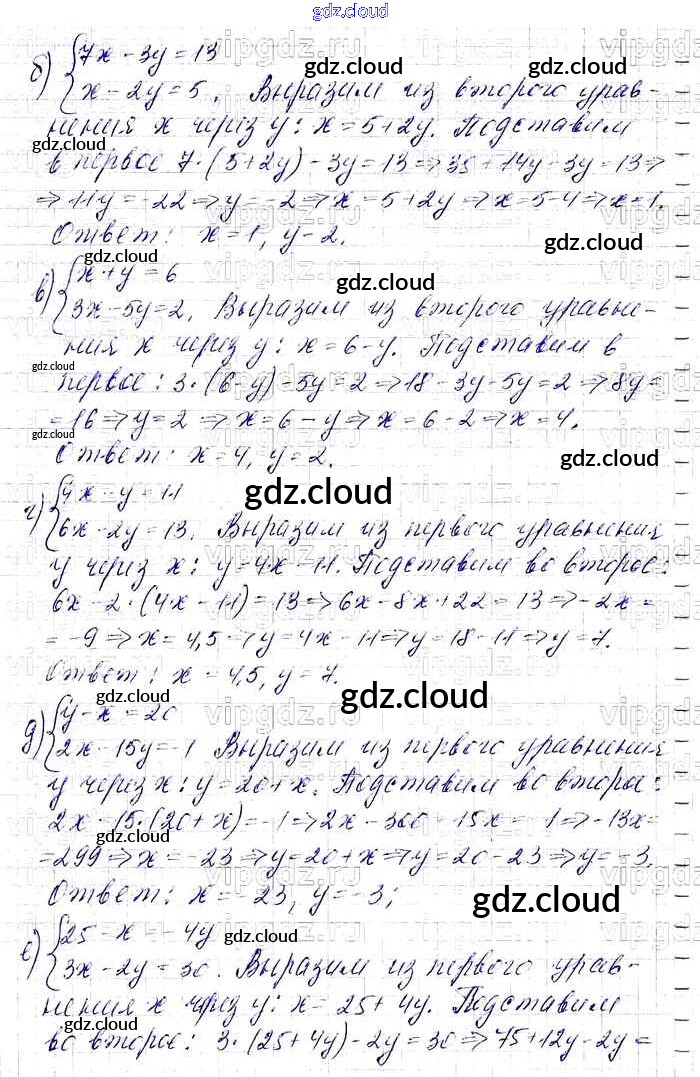 gdz.cloud
б) {7x - 3y = 13
{x - 2y = 5. Выразим из второго урав-
нения x через y: x = 5+2y. Подставим
в первое 7·(5+2y) - 3y = 13 ⇒ 35 + 14y - 3y = 13 ⇒
⇒ 11y = -22 ⇒ y = -2 ⇒ x = 5+2y ⇒ x = 5-4 ⇒ x = 1.
Ответ: x = 1, y - 2.
в) {x + y = 6
{3x - 5y = 2. Выразим из второго уравне-
ния x через y: x = 6-y. Подставим в
первое: 3·(6-y) - 5y = 2 ⇒ 18 - 3y - 5y = 2 ⇒ 8y =
= 16 ⇒ y = 2 ⇒ x = 6 - y ⇒ x = 6 - 2 ⇒ x = 4.
Ответ: x = 4, y = 2.
г) {4x - y = 11
{6x - 2y = 13. Выразим из первого уравнения
y через x: y = 4x - 11. Подставим во второе:
6x - 2·(4x - 11) = 13 ⇒ 6x - 8x + 22 = 13 ⇒ -2x =
= -9 ⇒ x = 4,5 ⇒ y = 4x - 11 ⇒ y = 18 - 11 ⇒ y = 7.
Ответ: x = 4,5, y = 7.
д) {y - x = 20
{2x - 15y = -1 Выразим из первого уравнения
y через x: y = 20+x. Подставим во второе:
2x - 15·(20 + x) = -1 ⇒ 2x - 300 - 15x = -1 ⇒ -13x =
= 299 ⇒ x = -23 ⇒ y = 20 + x ⇒ y = 20 - 23 ⇒ y = -3.
Ответ: x = -23, y = -3;
е) {25 - x = -4y
{3x - 2y = 30. Выразим из первого урав-
нения x через y: x = 25 + 4y. Подставим
во второе: 3·(25+4y) - 2y = 30 ⇒ 75 + 12y - 2y =